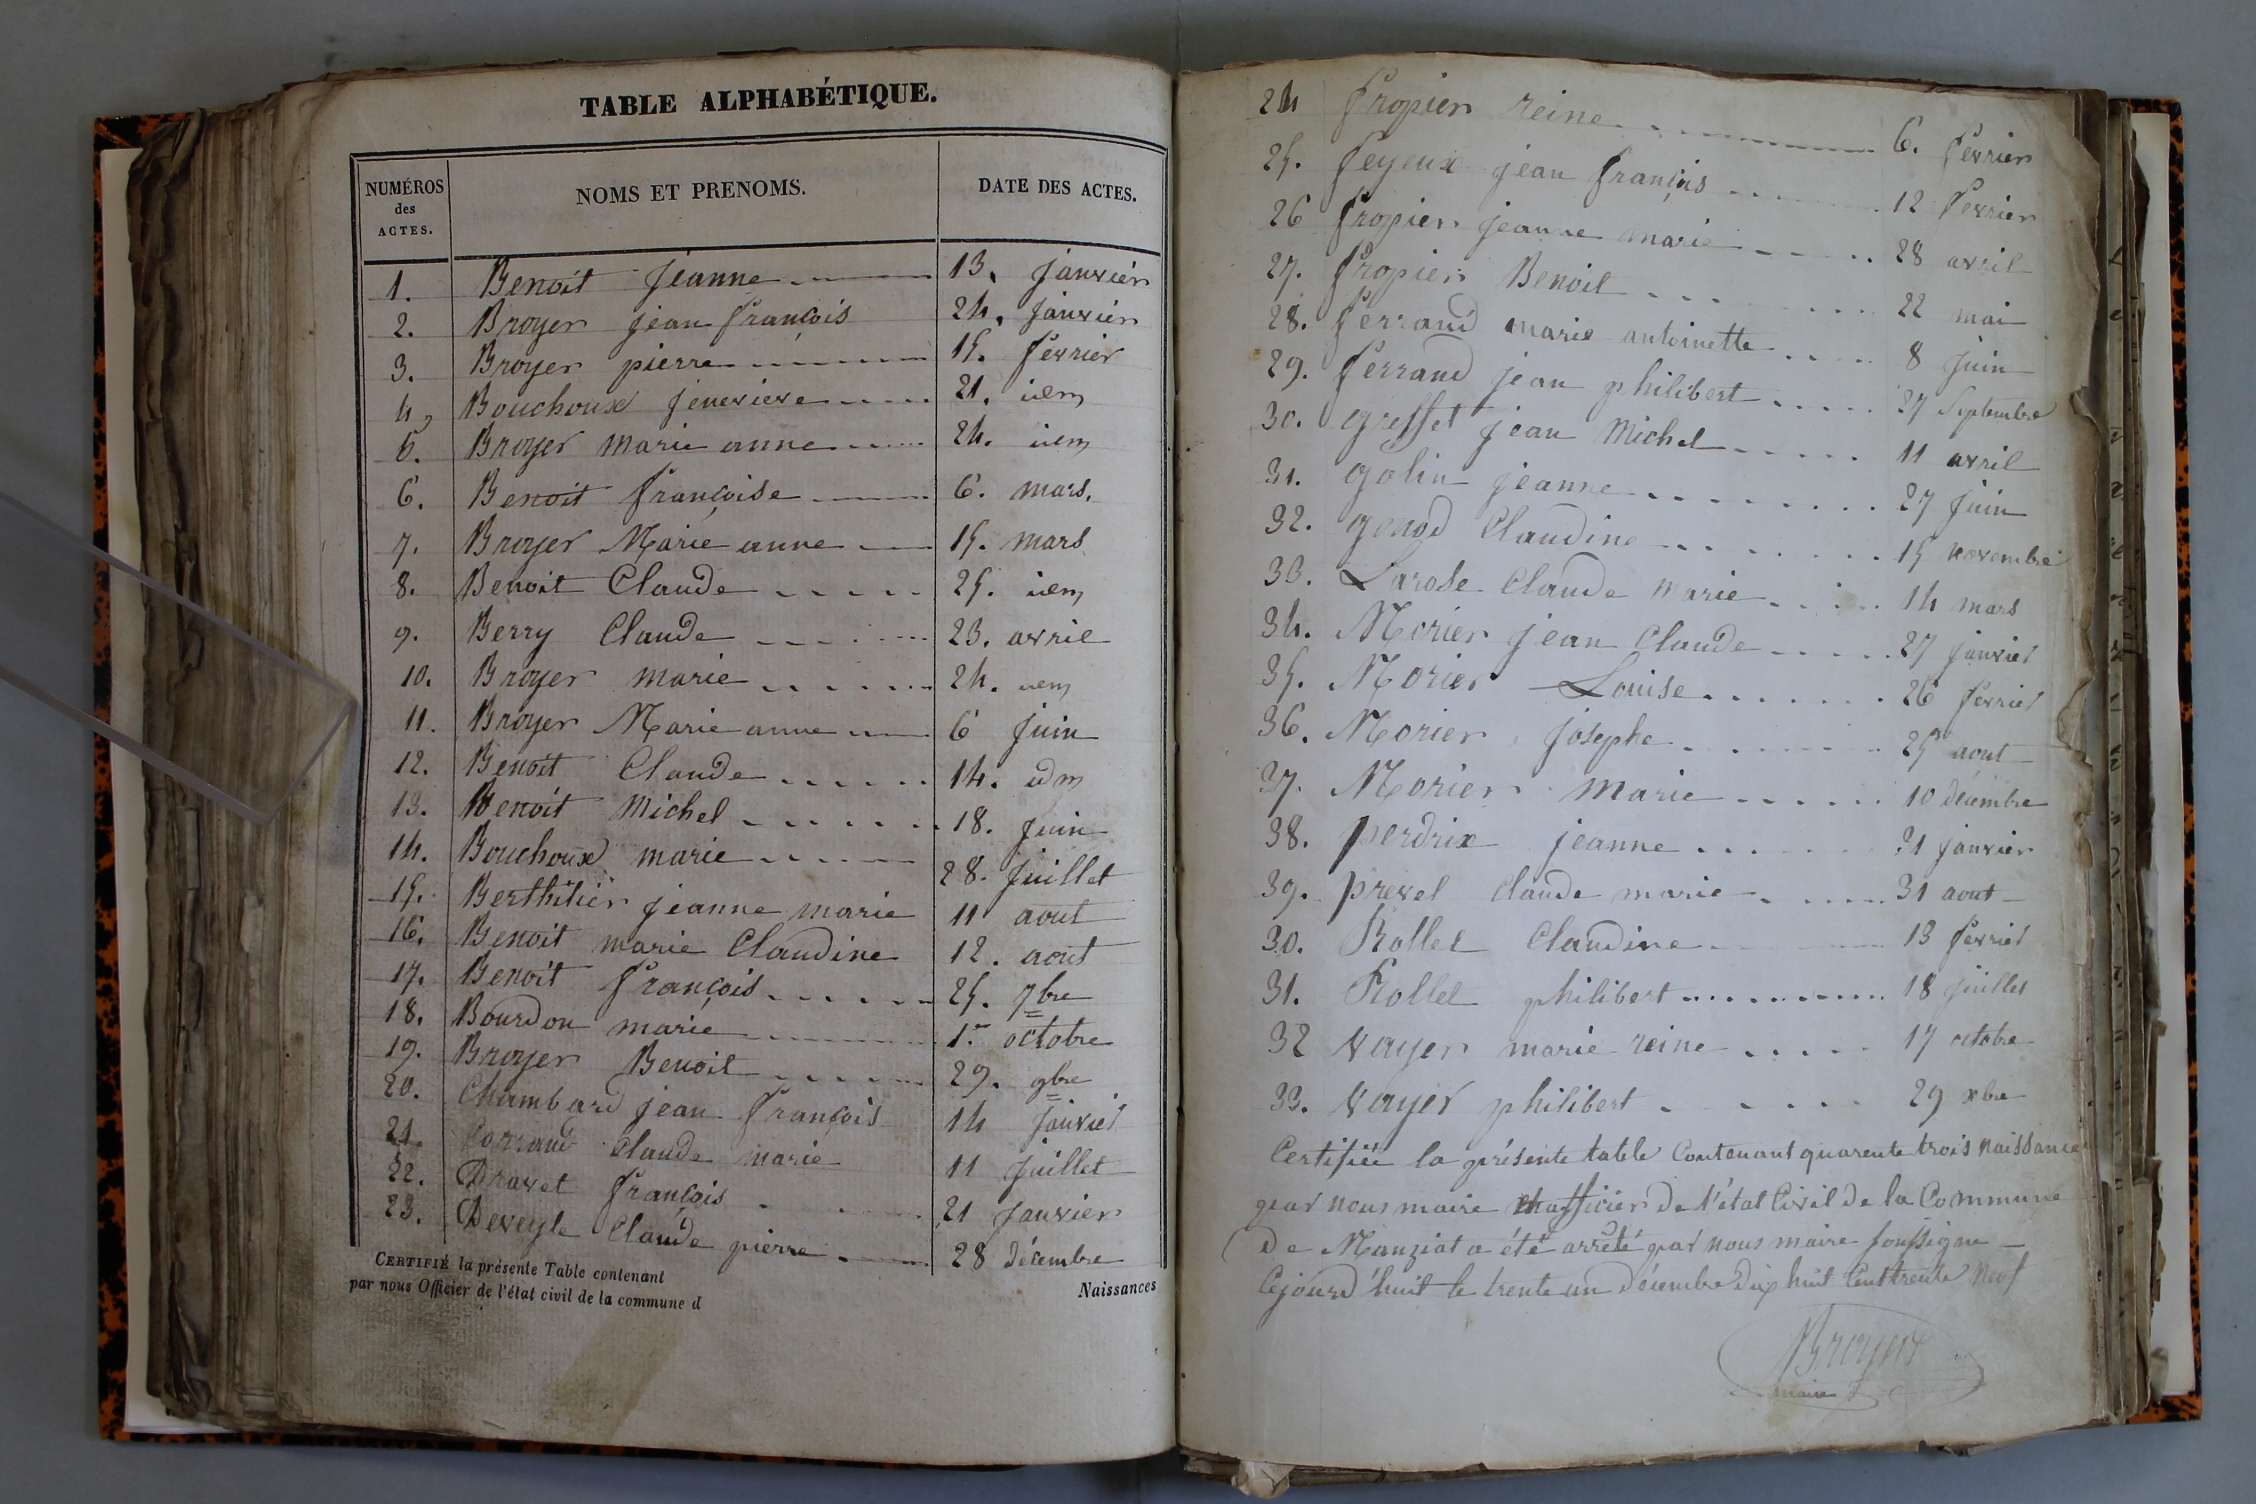 TABLE ALPHABÉTIQUE.
NUMÉROS des ACTES. NOMS ET PRENOMS. DATE DES ACTES.
1. Benoit Jeanne 13. Janvier
2. Broyer jean françois 24. Janvier
3. Broyer pierre 15. fevrier
4, Bouchoux jenevieve 21. idem
5. Broyer marie anne 24. idem
6. Benoit françoise 6. mars.
7. Broyer Marie anne 15. mars
8. Benoit Claude 25. idem
9. Berry Claude 23. avril
10. Broyer marie 24. idem
11. Broyer Marie anne 6 Juin
12. Benoit Claude 14. idm
13. Benoit Michel 18. Juin
14. Bouchoux marie 28. Juillet
15. Berthilier jeanne marie 11 aout
16. Benoit marie Claudine 12. aout
17. Benoit françois 25. 7bre
18. Bourdon marie 1.er octobre
19. Broyer Benoit 29. 9bre
20. Chambard jean françois 14 Janvier
21. Corrand Claude marie 11 Juillet
22. Dravet françois 21 Janvier
23. Deveyle Claude pierre 28 décembre
CERTIFIÉ la présente Table contenant Naissances
par nous Officier de l'état civil de la commune d
24 fropier reine 6. fevrier
25. feyeux jean françois 12 fevrier
26 fropier jeanne marie 28 avril
27. fropier Benoit 22 mai
28. ferrand marie antoinette 8 Juin
29. ferrand jean philibert 27 Septembre
30. greffet jean Michel 11 avril
31. golin jeanne 27 Juin
32. genod Claudine 15 novembre
33. Larose Claude marie 14 mars
34. Morier jean Claude 27 janvier
35. Morier Louise 26 fevrier
36. Morier josephe 25 aout
37. Morier Marie 10 décembre
38. perdrix jeanne 21 janvier
39. prevel claude marie 31 aout
30. Rollet Claudine 13 fevrier
31. Rollet philibert 18 juillet
32 vayer marie reine 17 octobre
33. vayer philibert 29 xbre
Certifiée la présente table Contenant quarente trois naissances
par nous maire et officier de l'état Civil de la Commune
de Manziat a été arrêté par nous maire soussigne
Cejourd'huit le trente un décembre dix huit Cent trente Neuf
Broyer
maire